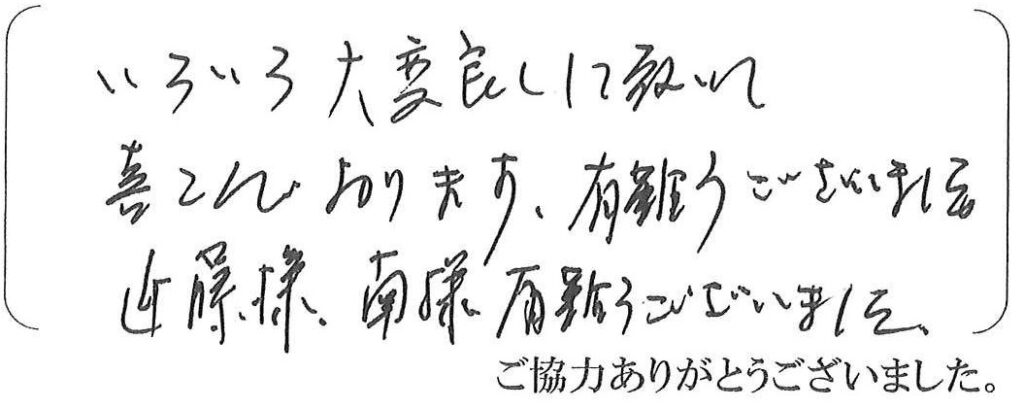 いろいろ大変良くして頂いて
喜こんでおります、有難うございました
近藤様、南様有難うございました、
ご協力ありがとうございました。